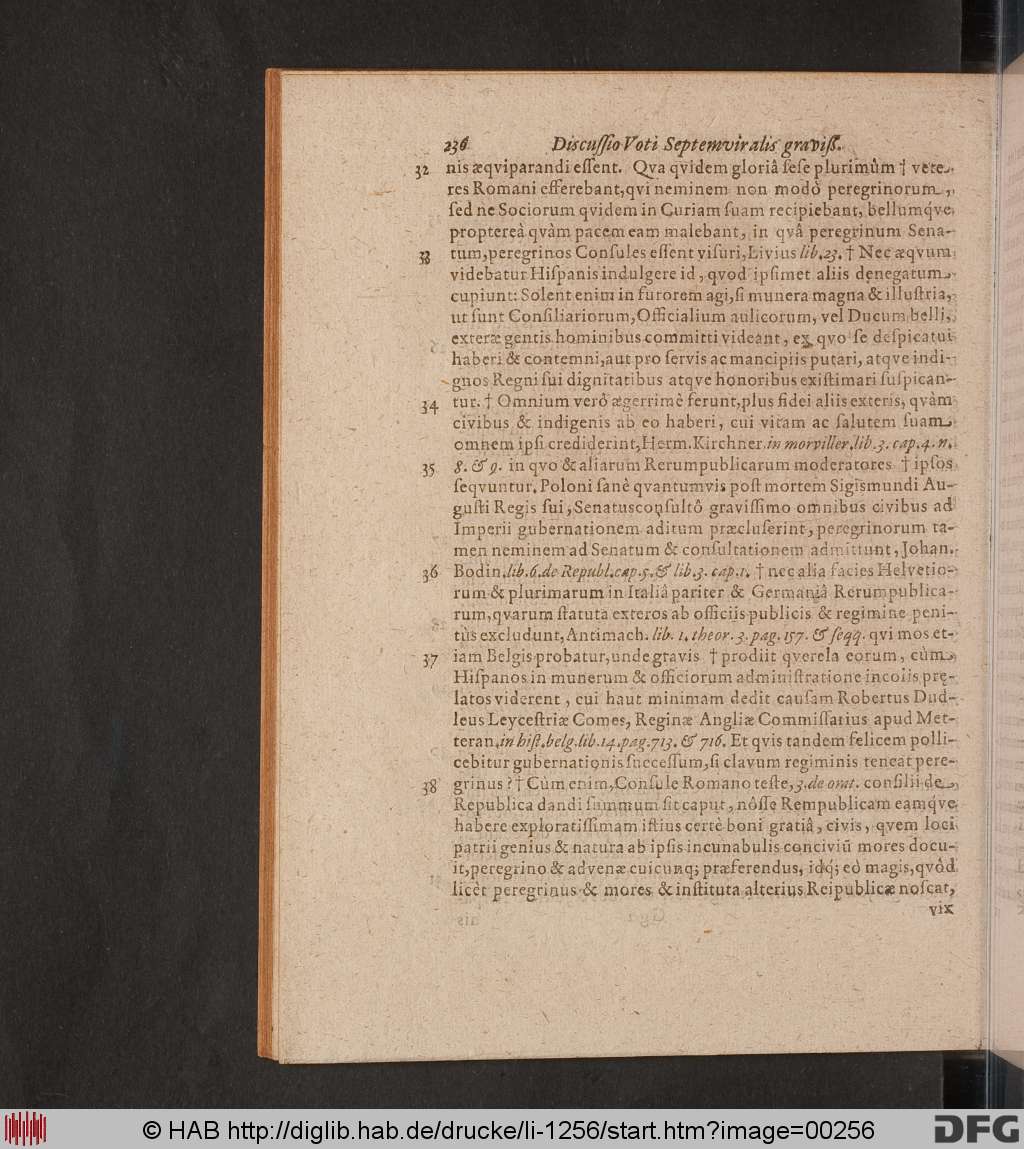 236 Discuſſio Voti Septemviralis graviſſ.
32 nis æqviparandi eſſent. Qva qvidem gloriâ ſeſe plurimùm † vete-
res Romani efferebant, qvi neminem non modò peregrinorum,
ſed ne Sociorum qvidem in Curiam ſuam recipiebant, bellumqve
proptereà qvàm pacem eam malebant, in qvâ peregrinum Sena-
33 tum, peregrinos Conſules eſſent viſuri, Livius lib. 23. † Nec æqvum
videbatur Hiſpanis indulgere id, qvod ipſimet aliis denegatum
cupiunt: Solent enim in furorem agi, ſi munera magna & illuſtria,
ut ſunt Conſiliariorum, Officialium aulicorum, vel Ducum belli,
exteræ gentis hominibus committi videant, ex qvo ſe deſpicatui
haberi & contemni, aut pro ſervis ac mancipiis putari, atqve indi-
gnos Regni ſui dignitatibus atqve honoribus exiſtimari ſuſpican-
34 tur. † Omnium verò ægerrimè ferunt, plus fidei aliis exteris, qvàm
civibus & indigenis ab eo haberi, cui vitam ac ſalutem ſuam
omnem ipſi crediderint, Herm. Kirchner. in morviller. lib. 3. cap. 4. n.
35 8. & 9. in qvo & aliarum Rerumpublicarum moderatores † ipſos
ſeqvuntur. Poloni ſanè qvantumvis poſt mortem Sigismundi Au-
guſti Regis ſui, Senatusconſultô graviſſimo omnibus civibus ad
Imperii gubernationem aditum præcluſerint, peregrinorum ta-
men neminem ad Senatum & conſultationem admittunt, Johan.
36 Bodin. lib. 6. de Republ. cap. 5. & lib. 3. cap. 1. † nec alia facies Helvetio-
rum & plurimarum in Italiâ pariter & Germaniâ Rerumpublica-
rum, qvarum ſtatuta exteros ab officiis publicis & regimine peni-
tùs excludunt, Antimach. lib. 1. theor. 3. pag. 157. & ſeqq. qvi mos et-
37 iam Belgis probatur, unde gravis † prodiit qverela eorum, cùm
Hiſpanos in munerum & officiorum adminiſtratione incolis pręlatos viderent, cui haut minimam dedit cauſam Robertus Dud-
leus Leyceſtriæ Comes, Reginæ Angliæ Commiſſarius apud Met-
teran. in hiſt. belg. lib. 14. pag. 713. & 716. Et qvis tandem felicem polli-
cebitur gubernationis ſucceſſum, ſi clavum regiminis teneat pere-
38 grinus? † Cùm enim, Conſule Romano teſte, 3. de orat. conſilii de
Republica dandi ſummum ſit caput, nôſſe Rempublicam eamqve
habere exploratiſſimam iſtius certè boni gratiâ, civis, qvem loci
patrii genius & natura ab ipſis incunabulis conciviũ mores docu-
it, peregrino & advenæ cuicunq; præferendus, idq; eò magis, qvòd
licèt peregrinus & mores & inſtituta alterius Reipublicæ noſcat,
vix
© HAB http://diglib.hab.de/drucke/li-1256/start.htm?image=00256
DFG